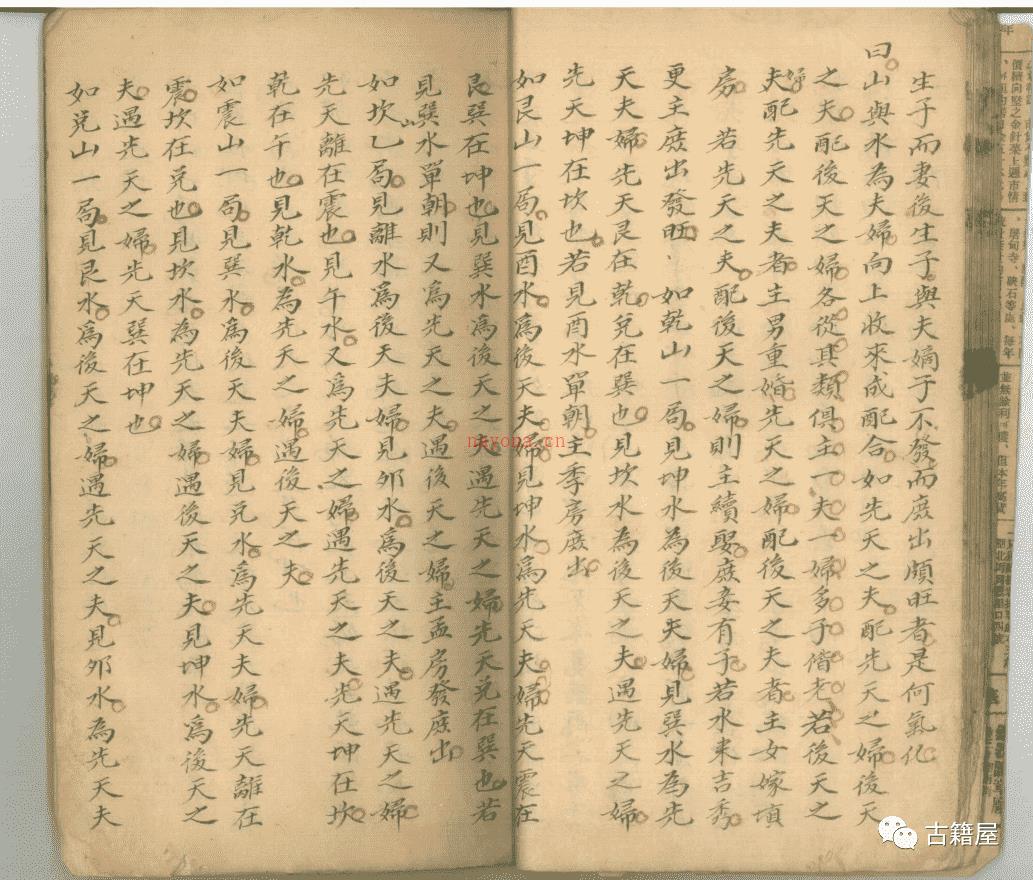 生子而妻後生子與夫嫡子不發而庶出頗旺者是何氣化
曰山與水為夫婦向上收來成配合如先天之夫配先天之婦後天
之夫配後天之婦各從其類俱主一夫一婦多子偕老若後天之
夫配先天之夫者主男重婚先天之婦配後天之夫者主女嫁填
婦
房 若先天之夫配後天之婦則主續娶庶妾有子若水来吉秀
更主庶出發旺 如乾山一局見坤水為後天夫婦見巽水為先
天夫婦先天艮在乾兌在巽也見坎水為後天之夫遇先天之婦
先天坤在坎也若見酉水單朝主季房庶出
如艮山一局見酉水為後天夫婦見坤水為先天夫婦先天震在
艮巽在坤也見巽水為後天之夫遇先天之婦先天兌在巽也若
見巽水單朝則又為先天之夫遇後天之婦主孟房發庶出
如坎山乙局見離水為後天夫婦見夘水為後天之夫遇先天之婦
先天離在震也見午水又為先天之婦遇先天之夫先天坤在坎
乾在午也見乾水為先天之婦遇後天之夫
如震山一局見巽水為後天夫婦見兌水為先天夫婦先天離在
震坎在兌也見坎水為先天之婦遇後天之夫見坤水為後天之
夫遇先天之婦先天巽在坤也
如兌山一局見艮水為後天之婦遇先天之夫見夘水為先天夫
nayona.cn
古籍屋